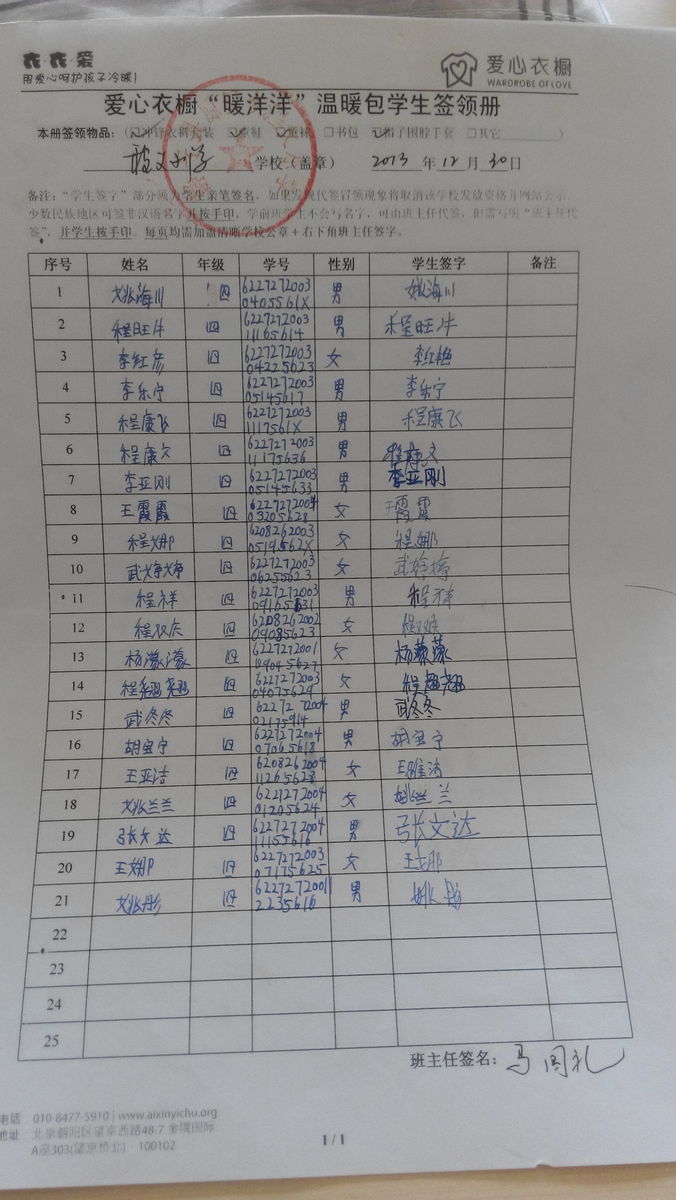 衣·衣·爱
用爱心呵护孩子冷暖!
爱心衣橱
WARDROBE OF LOVE
爱心衣橱“暖洋洋”温暖包学生签领册
本册签领物品: 童鞋 童袜 □书包 帽子围脖手套 □其它
小学 学校(盖章) 2013年12月30日
备注:“学生签字”部分须为学生亲笔签名,如果发现代签冒领现象将取消该学校发放资格并网站公示
少数民族地区可签非汉语名字并按手印,学前班学生不会写名字,可由班主任代签,但需写明“班主任代
签”,并学生按手印。每页均需加盖清晰学校公章+右下角班主任签字。
序号 姓名 年级 学号 性别 学生签字 备注
1 姚海川 四 6227272003 0405561X 男 姚海川
2 程旺牛 四 6227272003 11165614 男 程旺牛
3 李红彦 四 6227272003 04225623 女 李红艳
4 李乐宁 四 6227272003 05145617 男 李乐宁
5 程康飞 四 6227272003 1117561X 男 程康飞
6 程康文 四 6227272003 11175636 男 程康文
7 李亚刚 四 6227272003 05145633 男 李亚刚
8 王霞霞 四 6227272004 03205628 女 王霞霞
9 程娜 四 6208262003 0519562X 女 程娜
10 武婷婷 四 6227272003 06255623 女 武婷婷
11 程祥 四 6227272003 09165631 男 程祥
12 程双庆 四 6208262002 09085623 女
13 杨濛濛 四 6227272001 女 杨蒙蒙
14 程翘翘 四 6227272003 04075629 女 程翘翘
15 武冬冬 四 6227272004 02175914 男 武冬冬
16 胡宝宁 四 6227272004 07065618 男 胡宝宁
17 王亚洁 四 6208262004 11265628 女
18 姚兰兰 四 6227272004 01205624 女 姚兰兰
19 张文达 四 6227272004 11155616 男 张文达
20 王娜 四 6227272003 07175625 女 王娜
21 姚彤 四 62272720011 2235616 男 姚彤
22
23
24
25
班主任签名: 马国礼
电话 010-8477-5910 | www.aixinyichu.org
地址: 北京朝阳区望京西路48-7 金隅国际
A座303(望京桥北) · 100102
1 / 1